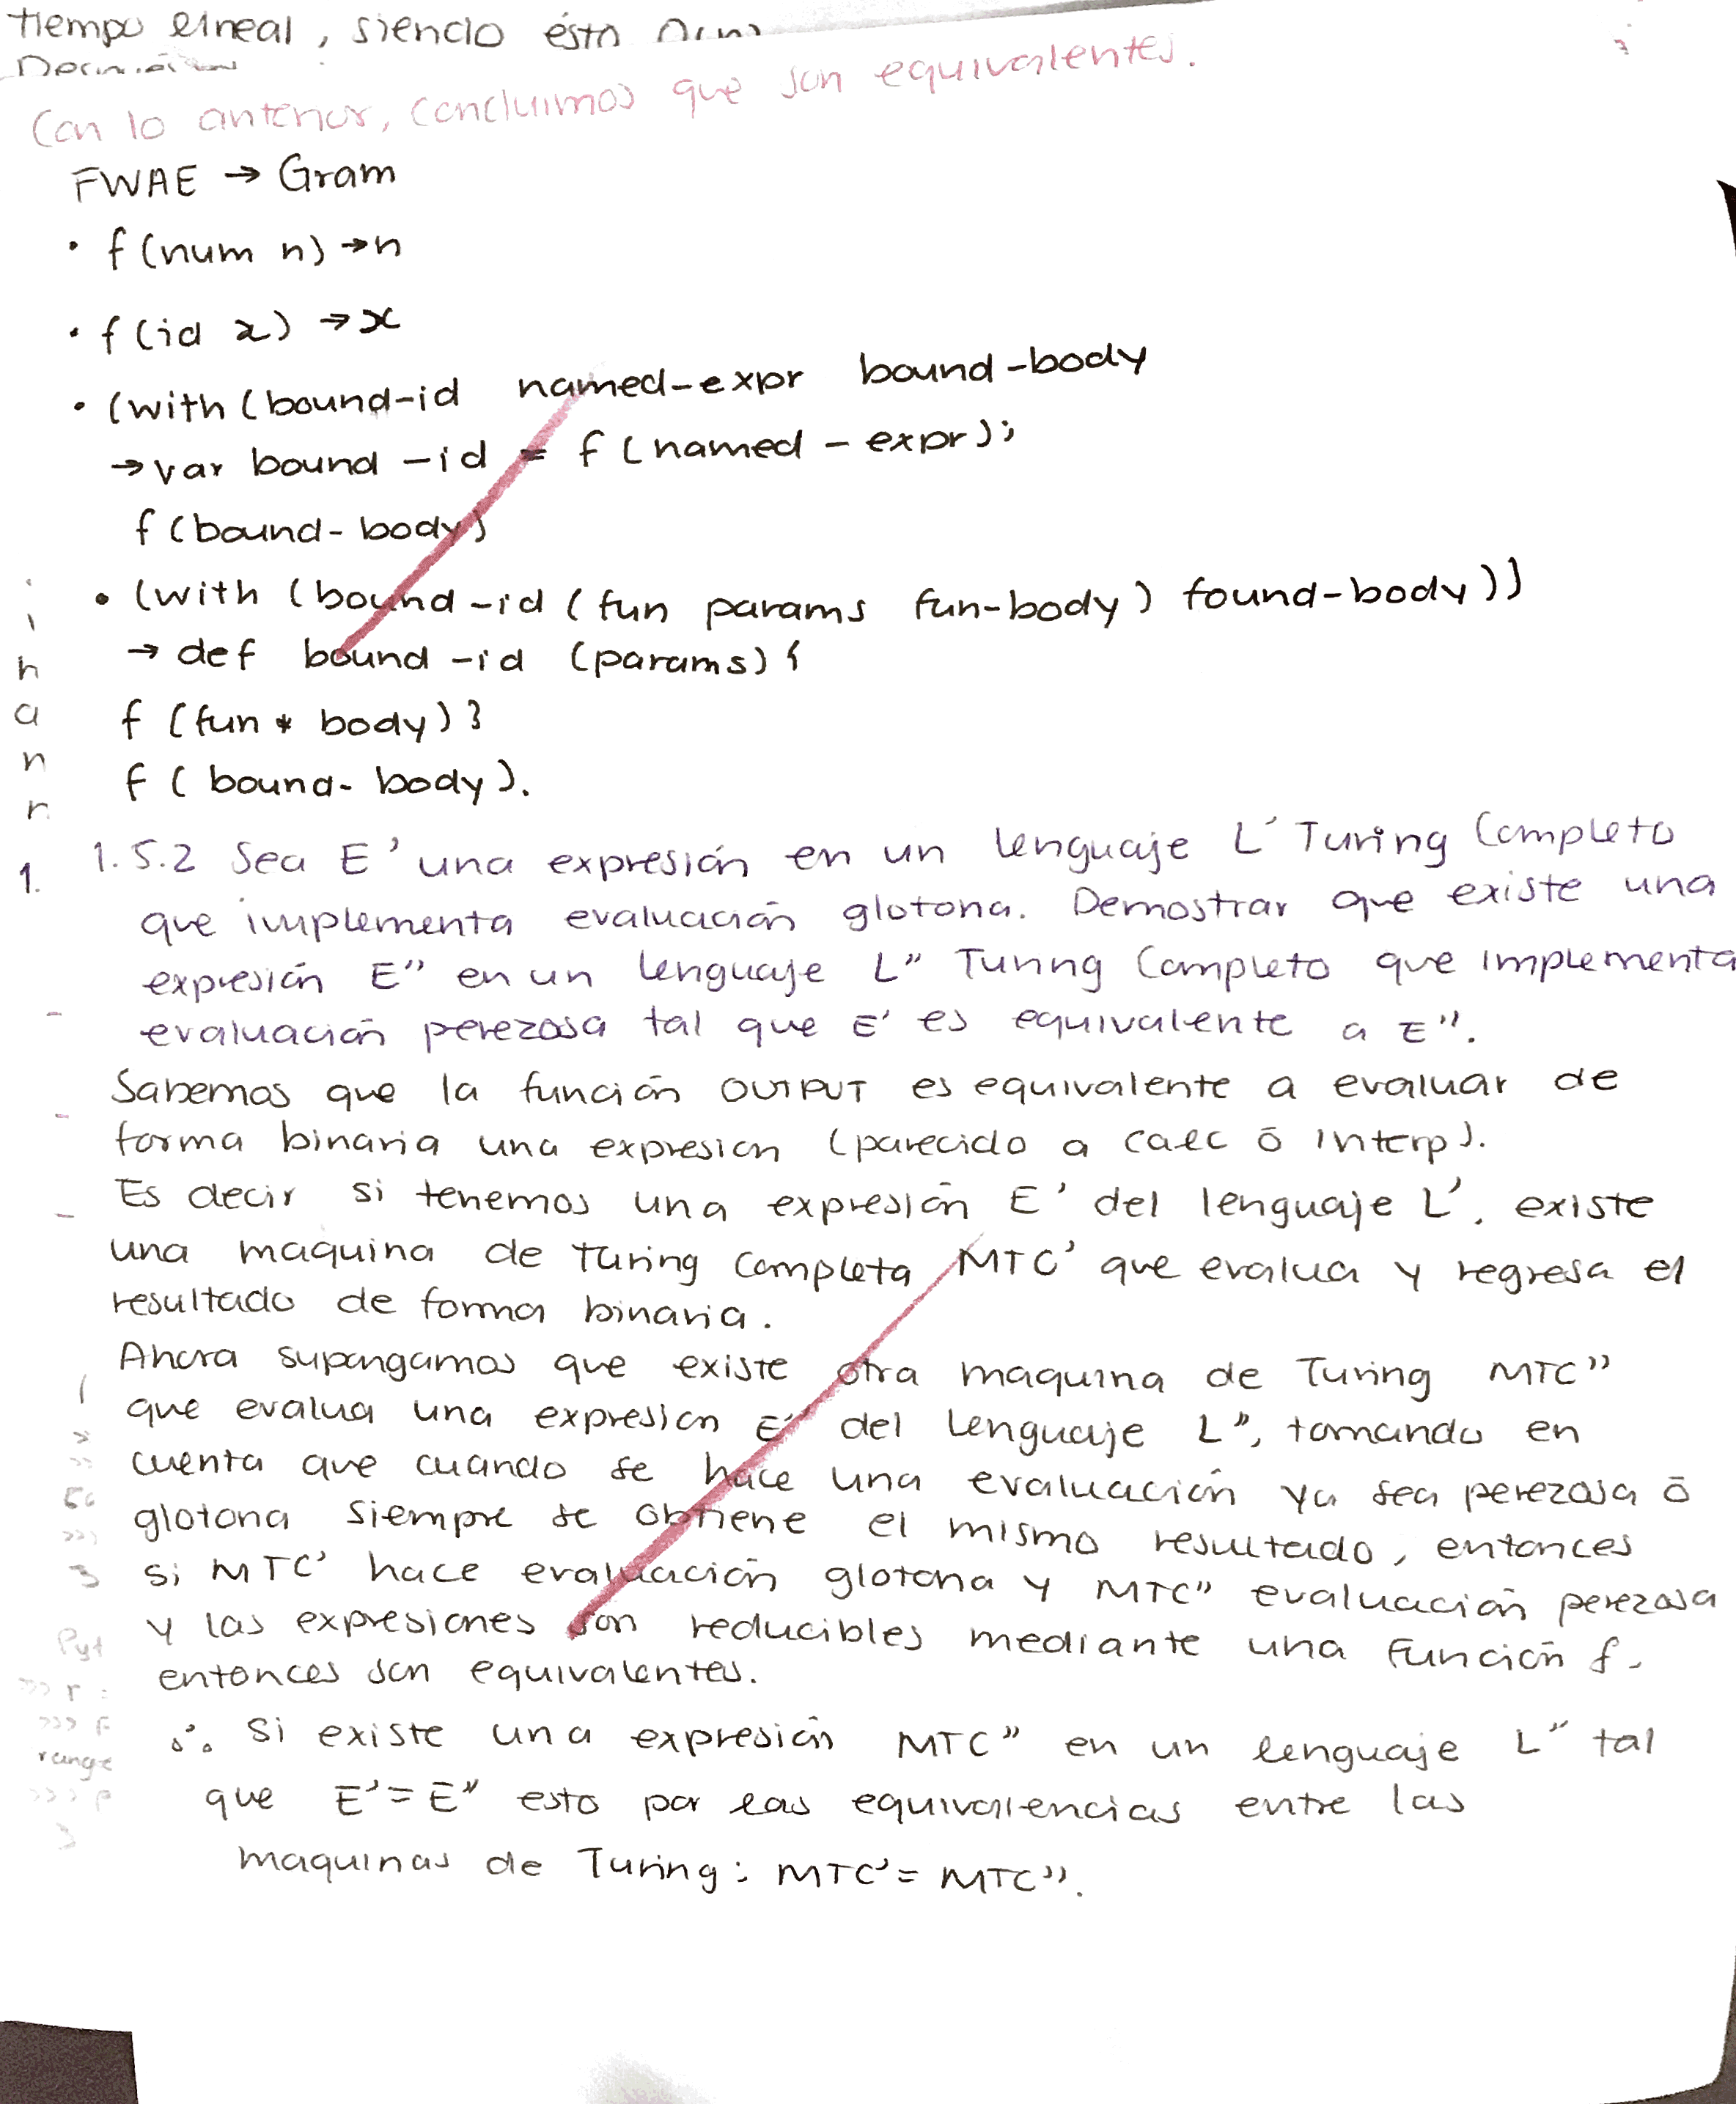 tiempo lineal, siendo ésta
Con lo anterior, concluimos que son equivalentes.
FWAE → Gram
• f(num n) → n
• f(id x) → x
• (with (bound-id named-expr bound-body
→ var bound-id = f(named-expr);
f(bound-body)
• (with (bound-id (fun params fun-body) found-body))
→ def bound-id (params) {
f (fun * body) }
f (bound-body).
1. 1.5.2 Sea E' una expresión en un lenguaje L' Turing Completo
que implementa evaluación glotona. Demostrar que existe una
expresión E'' en un lenguaje L'' Turing Completo que implementa
evaluación perezosa tal que E' es equivalente a E''.
Sabemos que la función OUTPUT es equivalente a evaluar de
forma binaria una expresion (parecido a calc ó interp).
Es decir si tenemos una expresión E' del lenguaje L', existe
una maquina de Turing completa MTC' que evalua y regresa el
resultado de forma binaria.
Ahora supongamos que existe otra maquina de Turing MTC''
que evalua una expresion E'' del lenguaje L'', tomando en
cuenta que cuando se hace una evaluación ya sea perezosa ó
glotona siempre se obtiene el mismo resultado, entonces
si MTC' hace evaluación glotona y MTC'' evaluación perezosa
y las expresiones son reducibles mediante una función f.
entonces son equivalentes.
∴ Si existe una expresión MTC'' en un lenguaje L'' tal
que E' = E'' esto por las equivalencias entre las
maquinas de Turing: MTC' = MTC''.